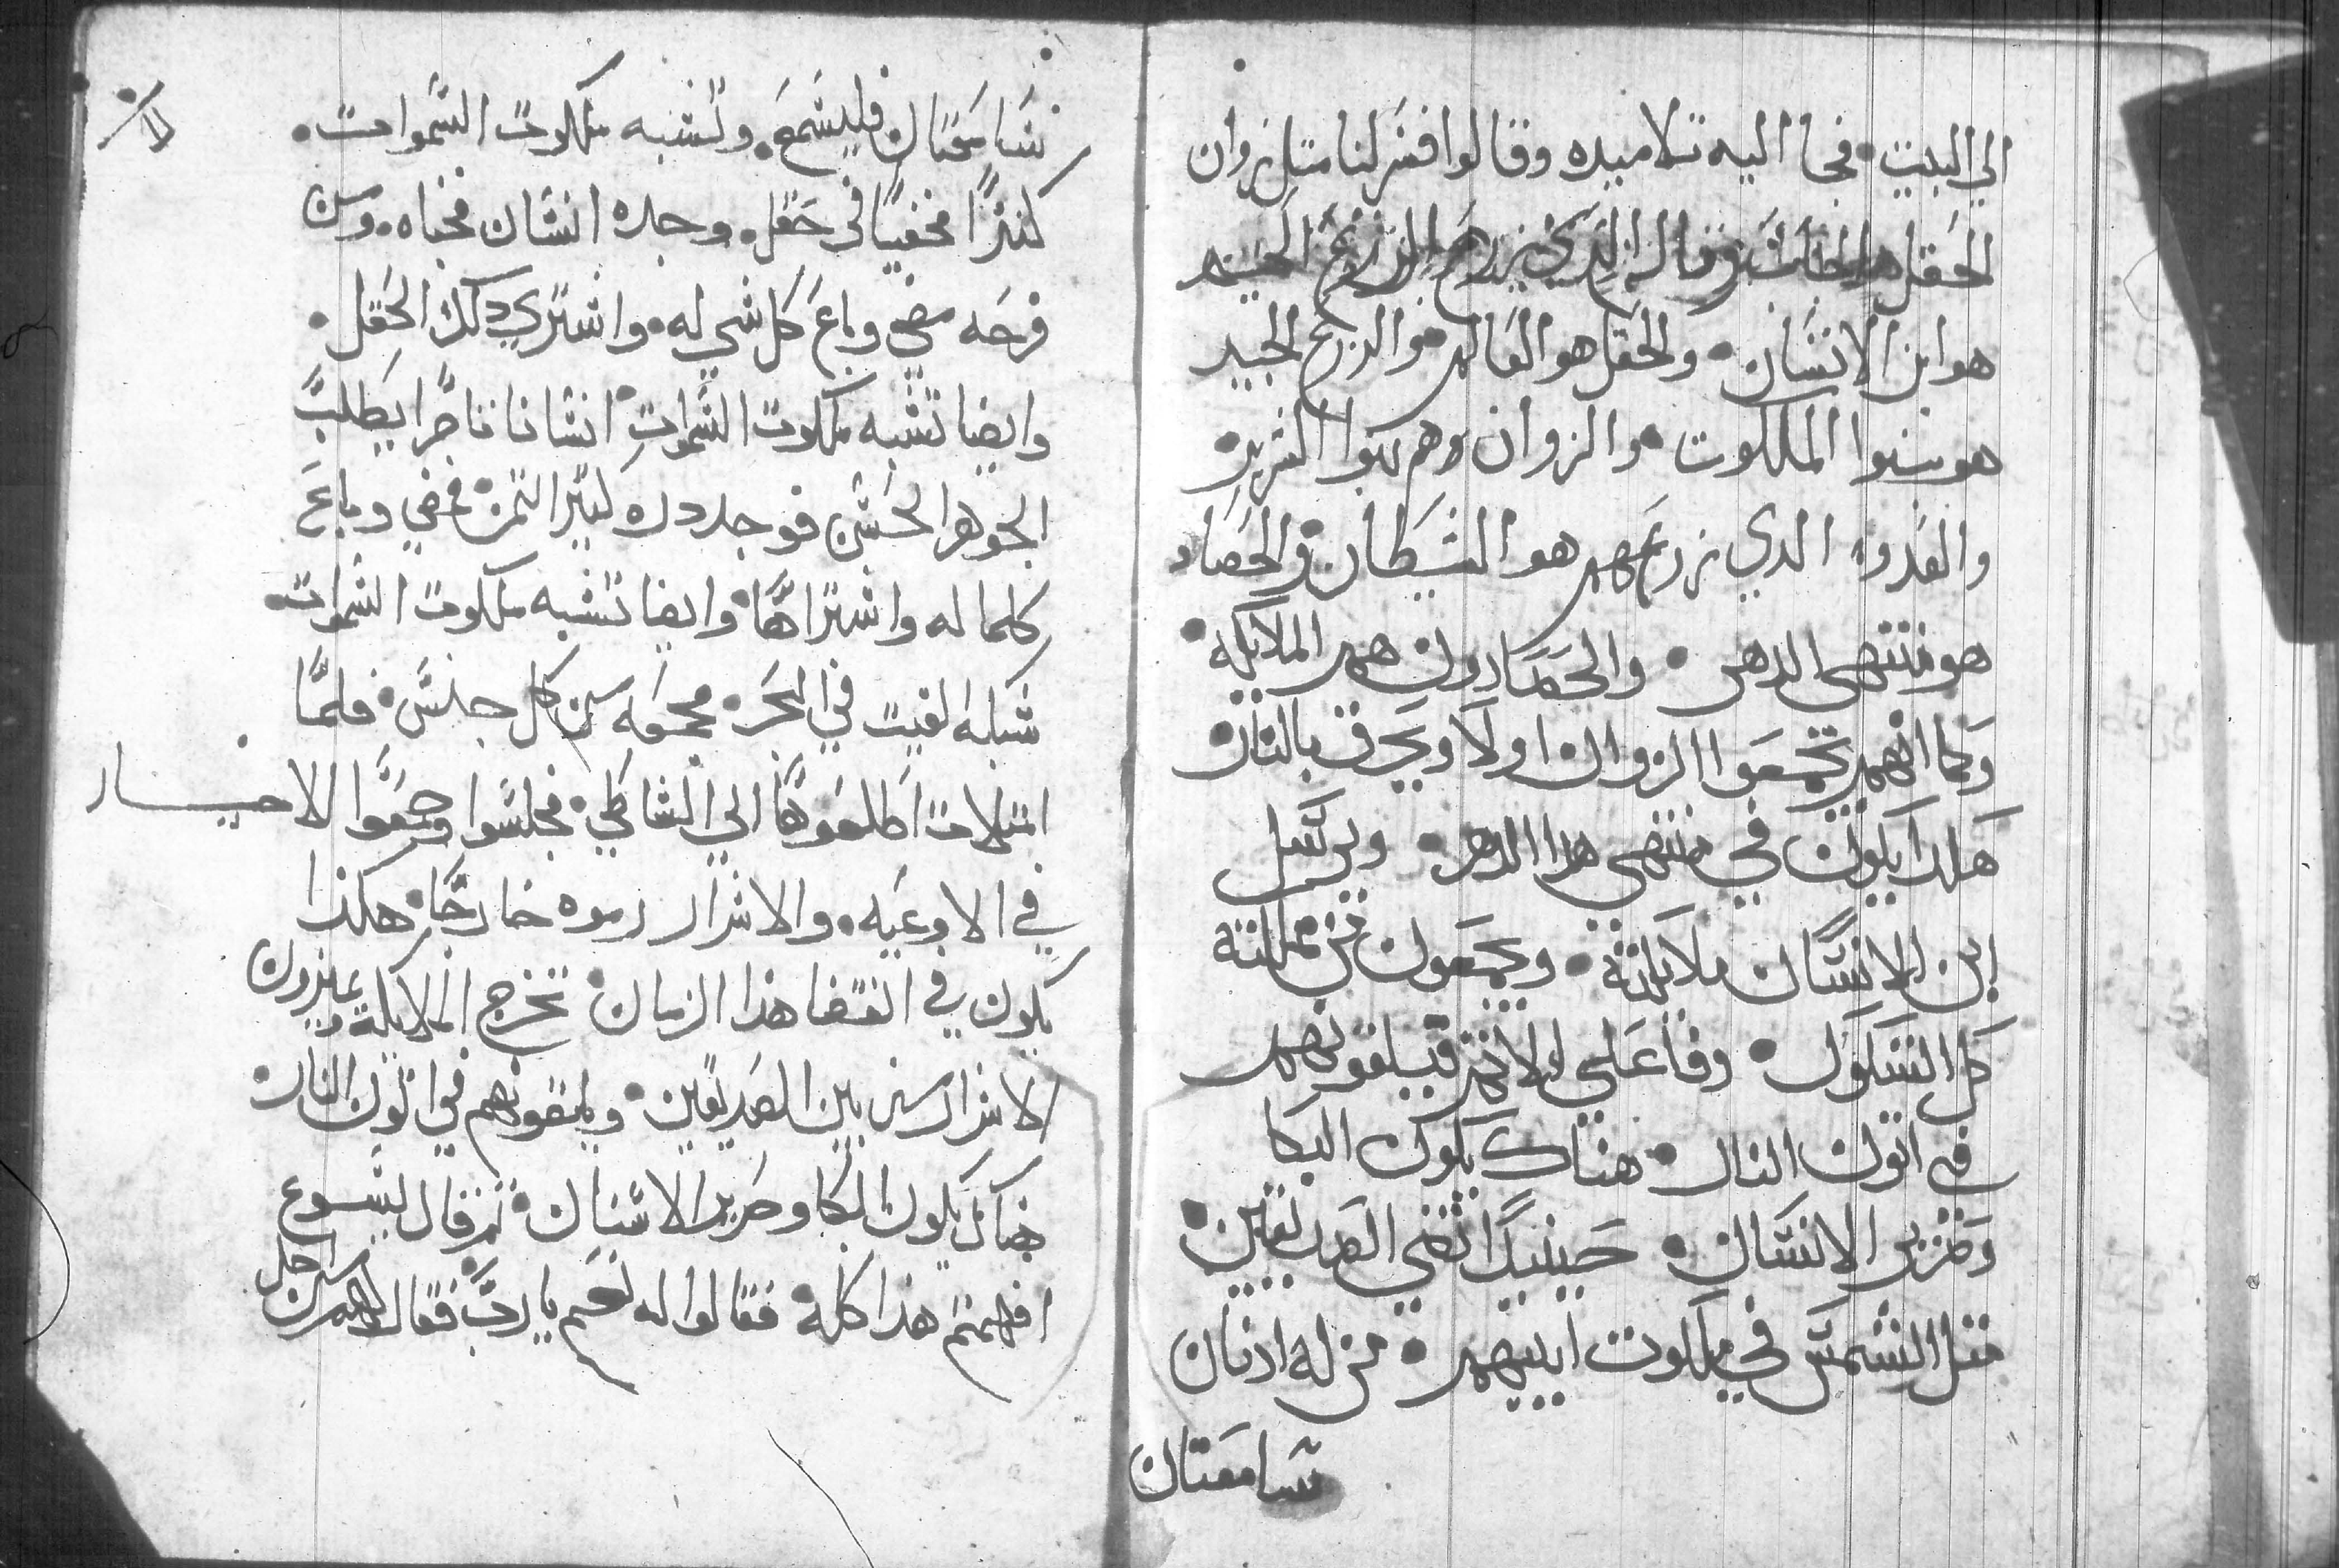 الي البيت • فجا اليه تلاميده وقالوا فسر لنا متل زوان
الحقل فاجاب وقال الدي يزرع الزرع الجيد
هو ابن الانسان • والحقل هو العالم • والزرع الجيد
هو بنوا الملكوت • والزوان هم بنوا الشرير •
والعدوا الدي زرعهم هو الشيطان • والحصاد
هو منتهى الدهر • والحصادون هم الملايكة •
وكما انهم يجمعوا الزوان اولا ويحرق بالنار •
هكدا يكون في منتهى هدا الدهر • ويرسل
ابن الانسان ملايكته • ويجمعون من مملكته
كل الشكوك • وفاعلي الاتم فيلقونهم
في اتون النار • هناك يكون البكا
وضرير الاسنان • حينيدا تضي الصديقين •
متل الشمس في ملكوت ابيهم • من له ادنان
سامعتان
سامعتان فليسمع • وتشبه ملكوت السموات •
كنزًا مخفيًا في حقل • وجده انسان فخباه • ومن
فرحه مضي وباع كل شي له • واشتري دلك الحقل •
وايضا تشبه ملكوت السموات • انسانا تاجرا يطلب
الجوهر الحسن فوجد دره كتير التمن • فمضي وباع
كلما له واشتراها • وايضا تشبه ملكوت السموات •
شبكه القيت في البحر • مجمعه من كل جنس • فلما
امتلات اطلعوها الي الشاطي • فجلسوا وجمعوا الاخيار
في الاوعيه • والاشرار رموه خارجا • هكذا
يكون في انقضا هذا الزمان • تخرج الملايكة ويميزون
الاشرار من بين الصديقين • ويلقونهم في اتون النار •
هناك يكون البكا وصرير الاسنان • تم قال ليسوع
افهمتم هذا كله • فقالوا له نعم يا رب • فقال لهم من اجل